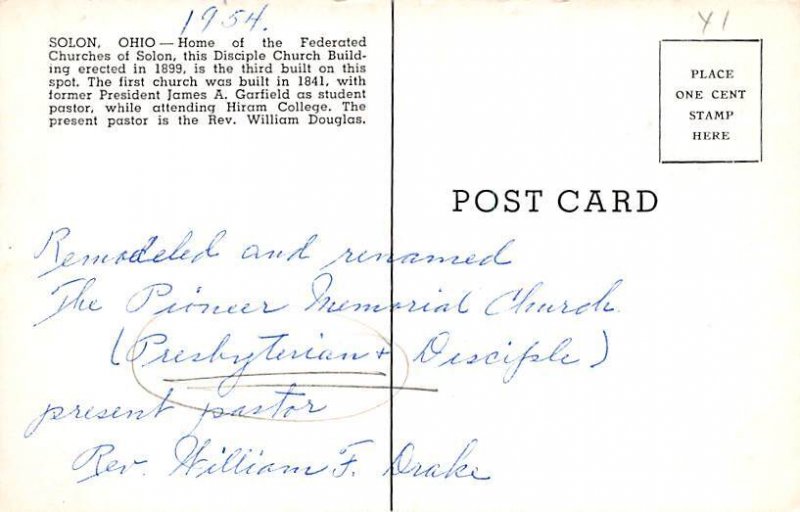 1954.
Y1
SOLON, OHIO — Home of the Federated
Churches of Solon, this Disciple Church Build-
ing erected in 1899, is the third built on this
spot. The first church was built in 1841, with
former President James A. Garfield as student
pastor, while attending Hiram College. The
present pastor is the Rev. William Douglas.
PLACE
ONE CENT
STAMP
HERE
POST CARD
Remodeled and renamed
The Pioneer Memorial Church
(Presbyterian + Disciple)
present pastor
Rev. William F. Drake